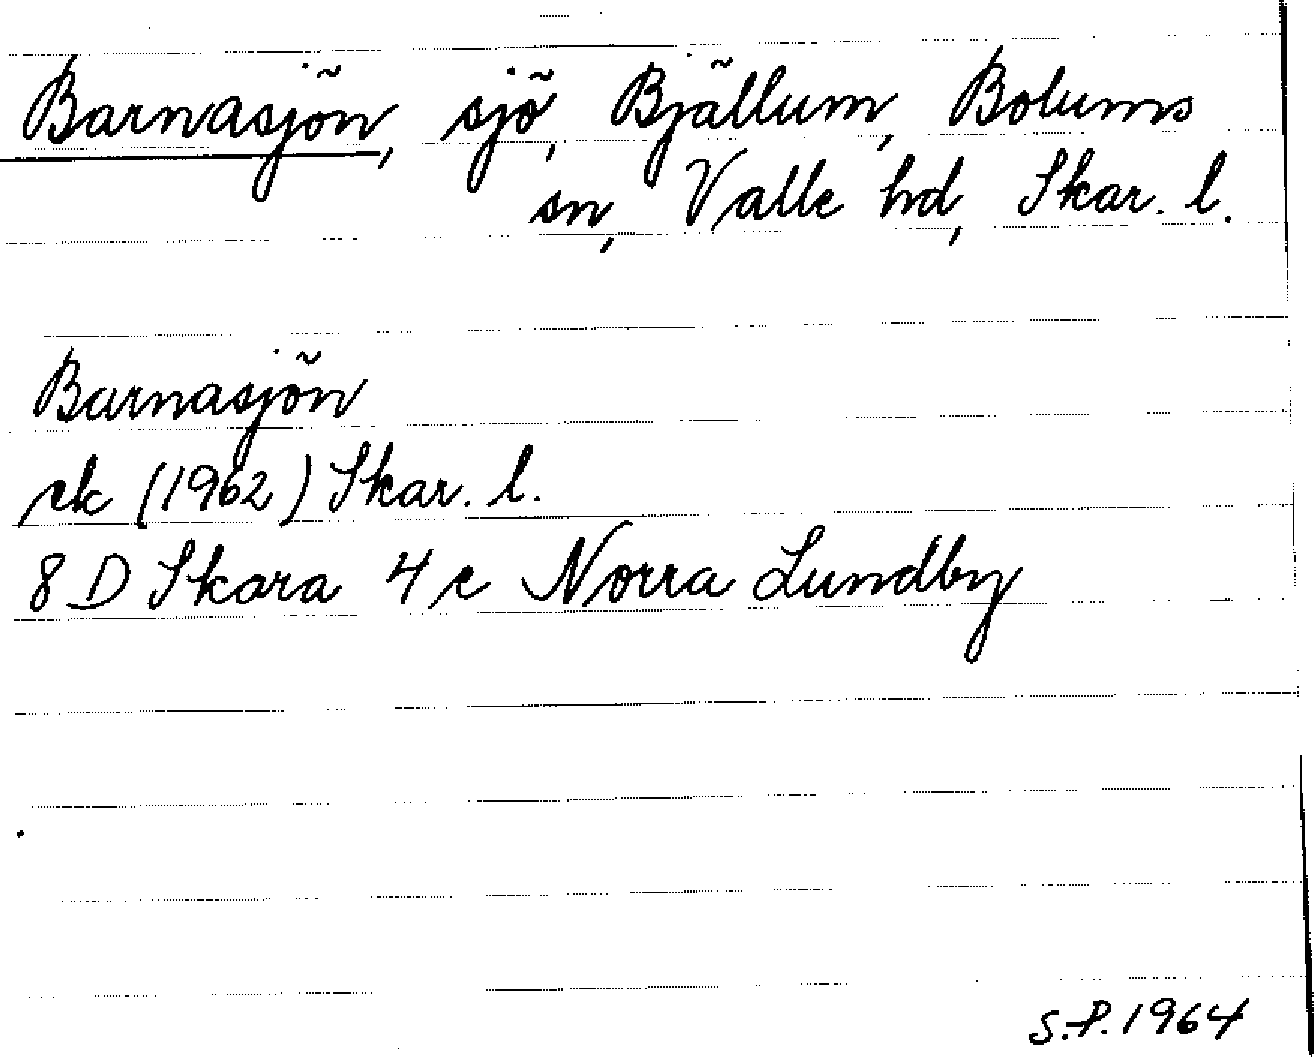 Barnasjön, sjö, Bjällum, Bolums
sn, Valle hd, Skar. l.
Barnasjön
ek (1962) Skar. l.
8 D Skara 4 e Norra Lundby
S.P. 1964